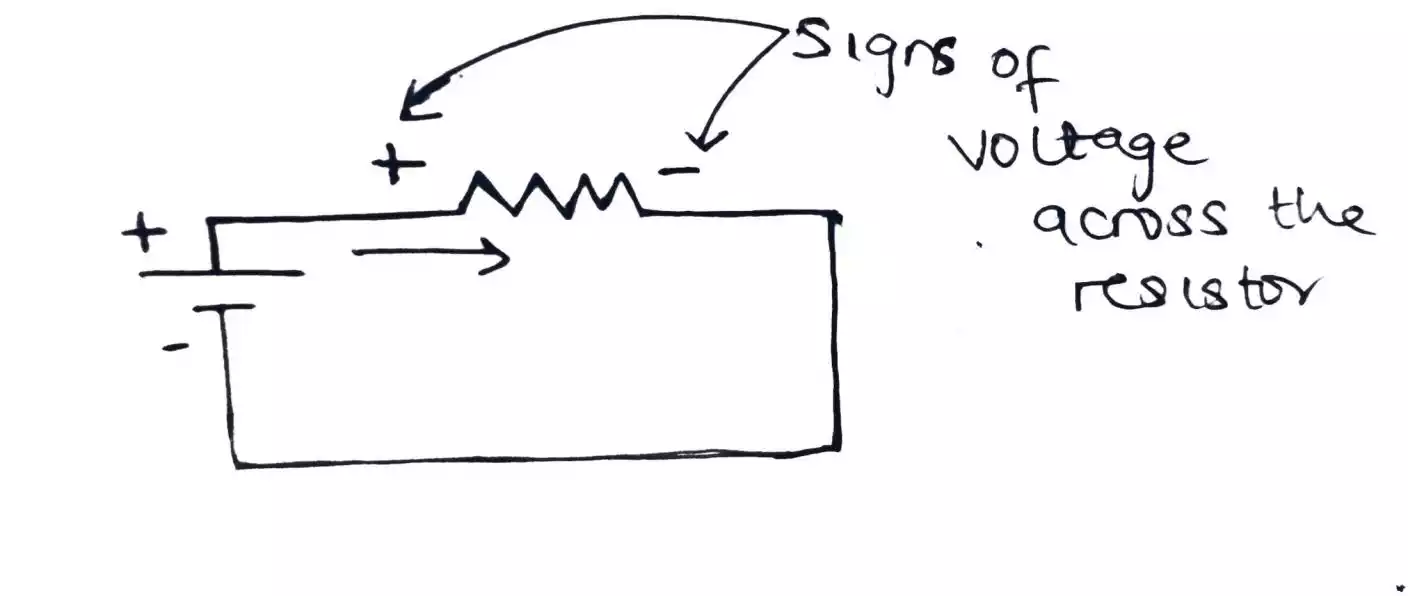 Signs of
voltage
across the
resistor
+ -
+
-